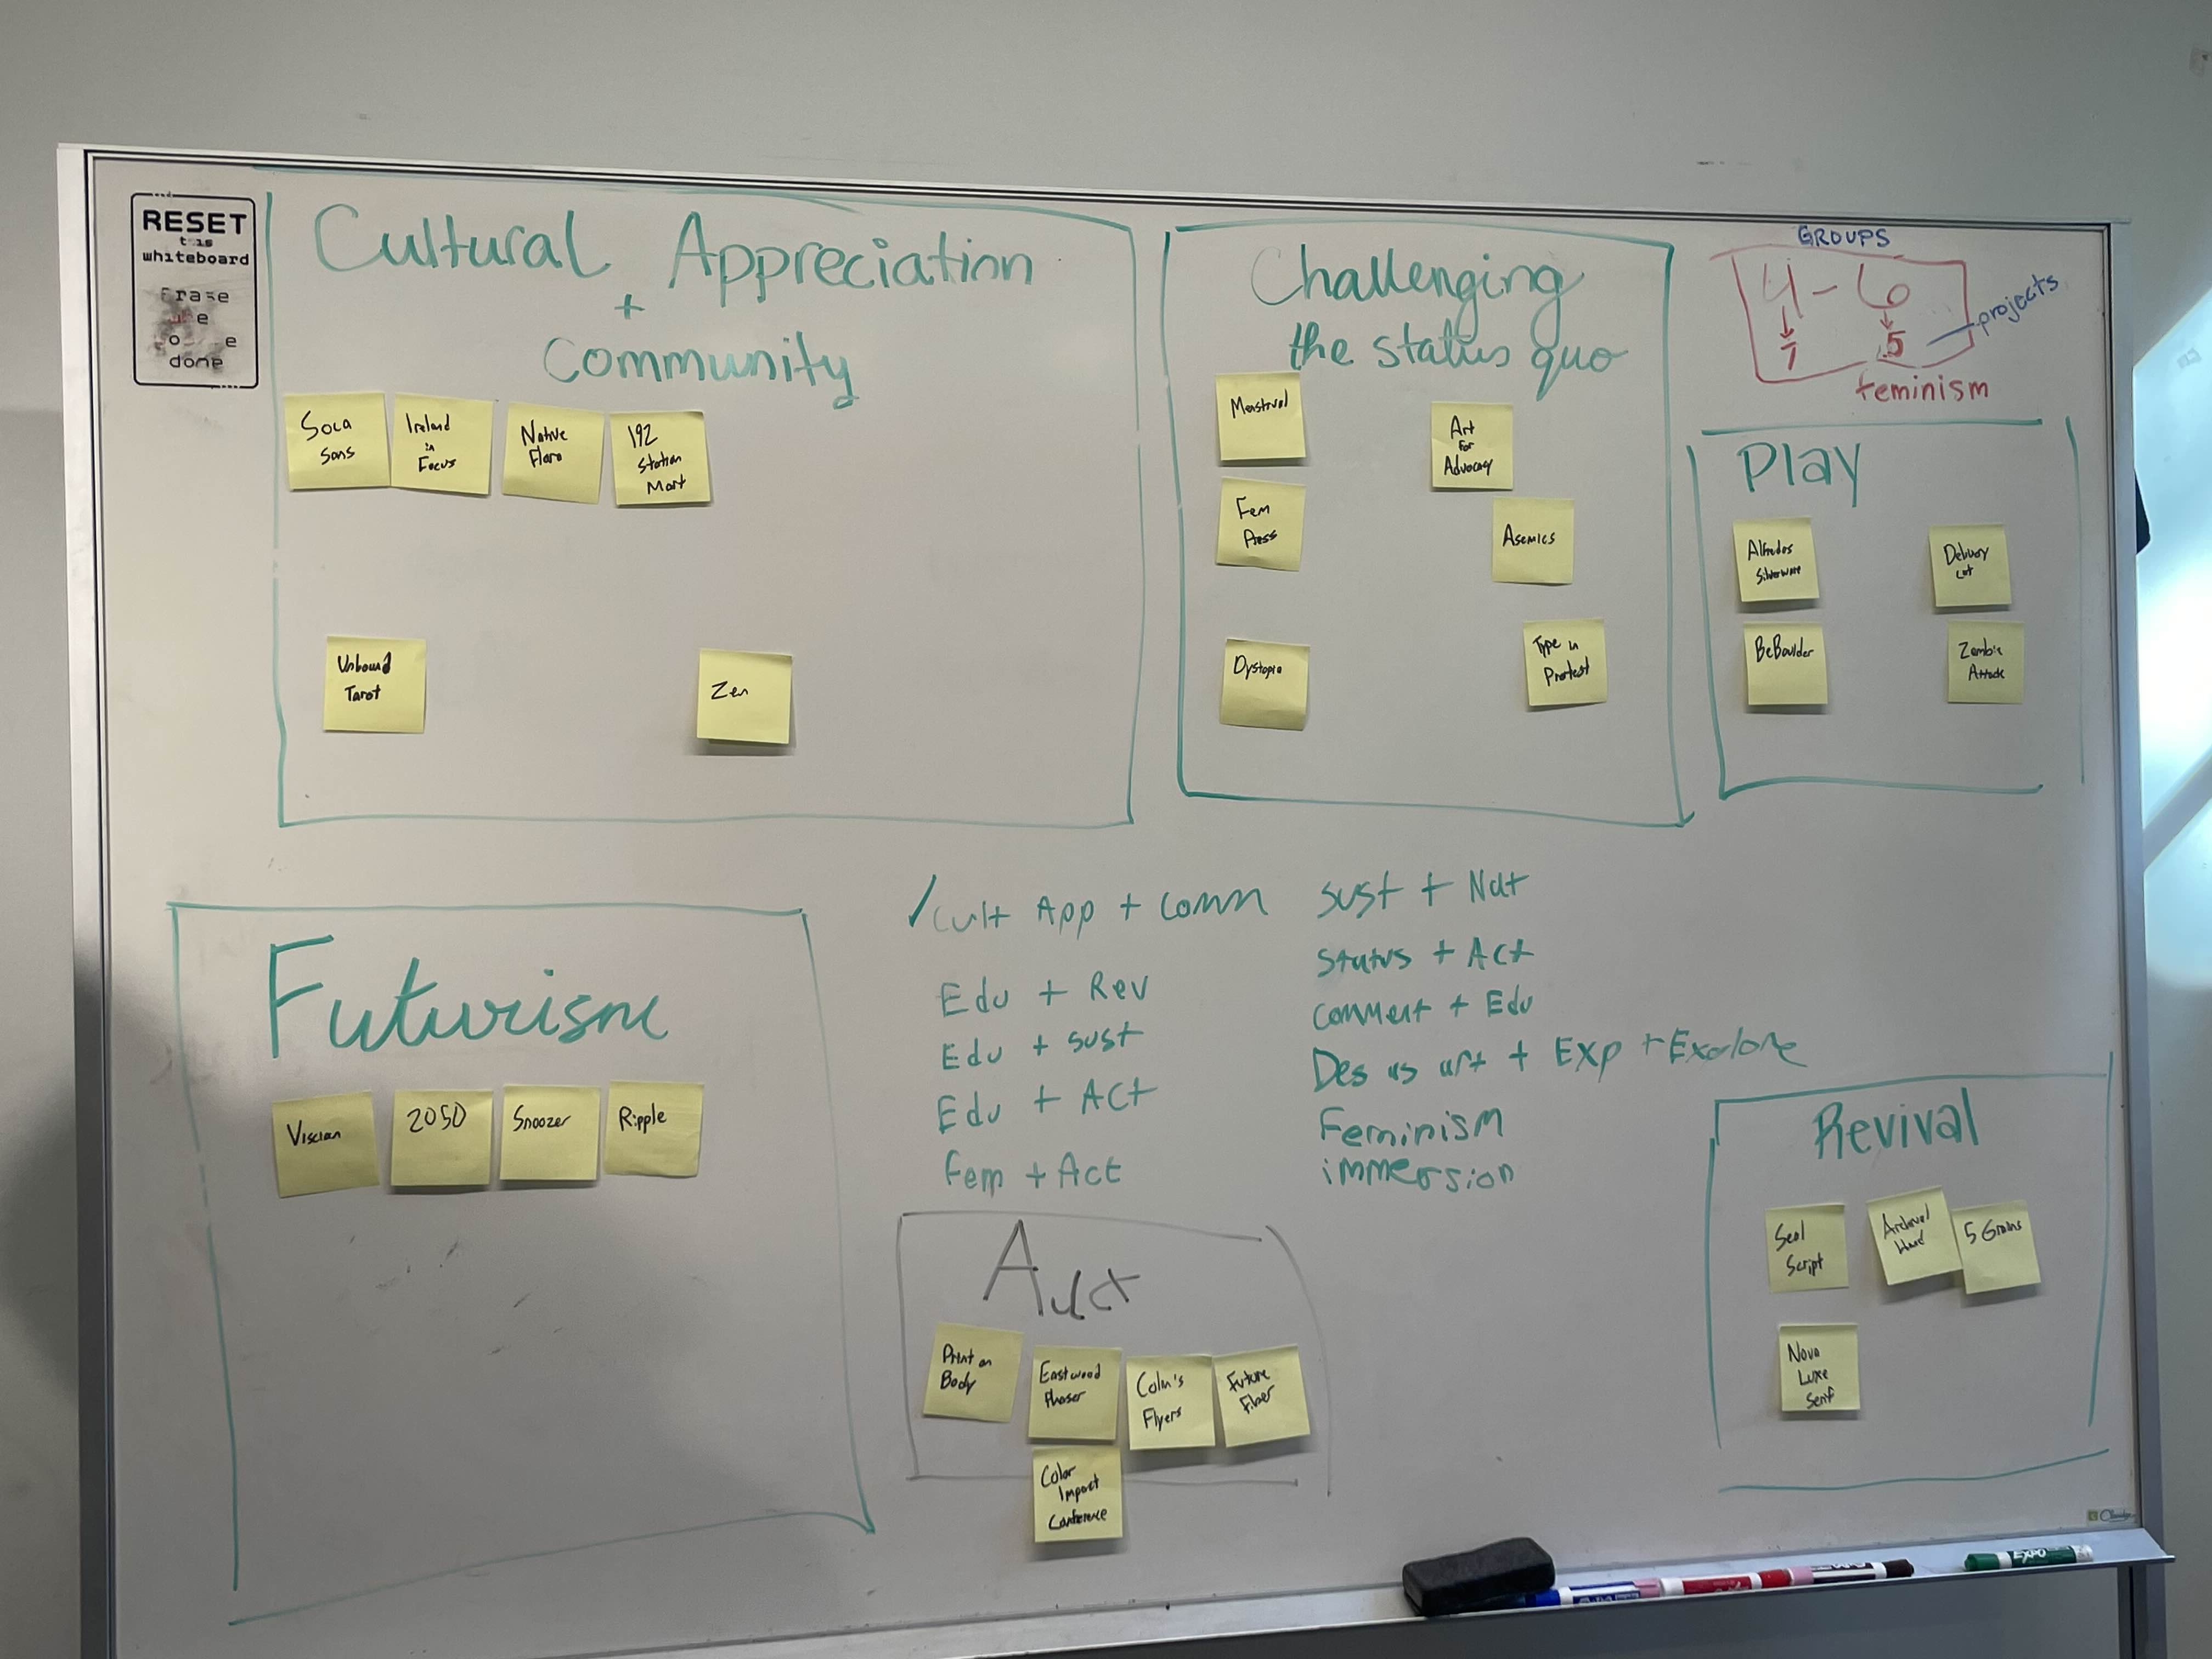 RESET
this
whiteboard
Erase
done
Cultural Appreciation
+
Community
Soca
Sans
Ireland
in
Focus
Native
Flora
192
Station
Mart
Unbound
Tarot
Zen
Challenging
the status quo
Menstrual
Art
for
Advocacy
Fem
Press
Asemics
Dystopia
Type in
Protest
GROUPS
4 - 6
7 5
projects
feminism
Play
Alfredos
Silverware
Delivery
Cat
BeBoulder
Zombie
Attack
Futurism
2050
Snoozer
Ripple
✓Cult App + Comm
Edu + Rev
Edu + sust
Edu + Act
Fem + Act
Sust + Nat
Status + Act
Comment + Edu
Des as art + Exp + Explore
Feminism
immersion
Print on
Body
Eastwood
Phaser
Colm's
Flyers
Future
Fiber
Color
Impact
Conference
Revival
Seal
Script
5 Grains
Nova
Luxe
Serif
EXPO